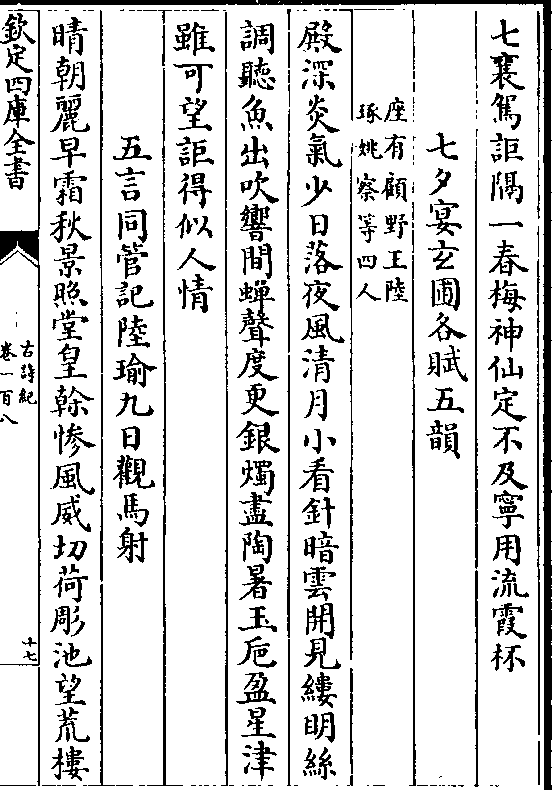 七襄駕詎隔一春梅神仙定不及寧用流霞杯
七夕宴玄圃各賦五韻
座有顧野王陸
琢姚察等四人
殿深炎氣少日落夜風清月小看針暗雲開見縷明絲
調聽魚出吹響間蟬聲度更銀燭盡陶暑玉巵盈星津
雖可望詎得似人情
五言同管記陸瑜九日觀馬射
晴朝麗早霜秋景照堂皇榦惨風威切荷彫池望荒樓
欽定四庫全書
古詩紀
卷一百八
十七